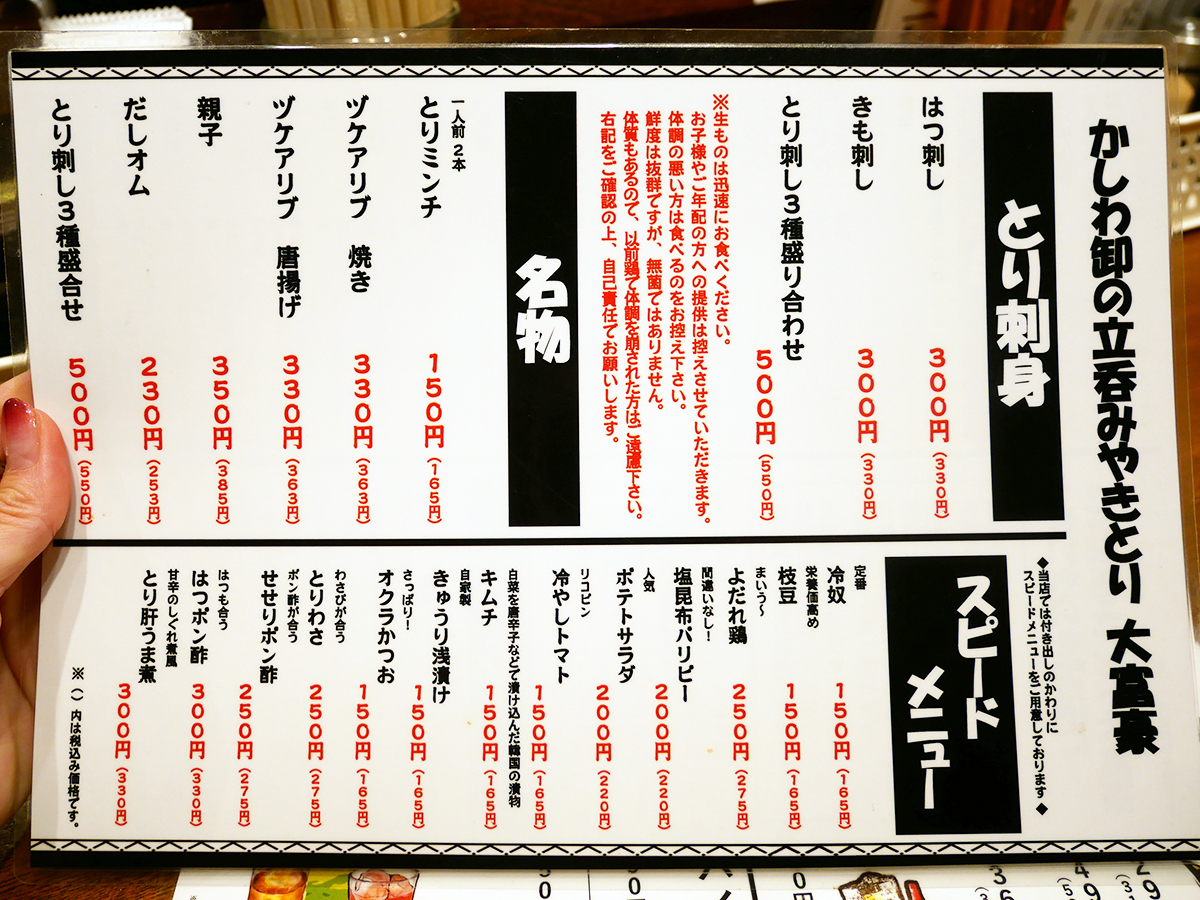 かしわ卸の立呑みやきとり 大富豪
とり刺身
はつ刺し 300円(330円)
きも刺し 300円(330円)
とり刺し3種盛り合わせ 500円(550円)
※生ものは迅速にお食べください。
お子様やご年配の方への提供は控えさせていただきます。
体調の悪い方は食べるのをお控え下さい。
鮮度は抜群ですが、無菌ではありません。
体質もあるので、以前鶏で体調を崩された方はご遠慮下さい。
右記をご確認の上、自己責任でお願いします。
名物
一人前2本
とりミンチ 150円(165円)
ヅケアリブ 焼き 330円(363円)
ヅケアリブ 唐揚げ 330円(363円)
親子 350円(385円)
だしオム 230円(253円)
とり刺し3種盛合せ 500円(550円)
◆当店では付き出しのかわりに
スピードメニューをご用意しております◆
スピード
メニュー
定番
冷奴 150円(165円)
栄養価高め
枝豆 150円(165円)
まいう〜
よだれ鶏 250円(275円)
間違いなし!
塩昆布パリピー 200円(220円)
人気
ポテトサラダ 200円(220円)
リコピン
冷やしトマト 150円(165円)
白菜を唐辛子などで漬け込んだ韓国の漬物
キムチ 150円(165円)
自家製
きゅうり浅漬け 150円(165円)
さっぱり!
オクラかつお 150円(165円)
わさびが合う
とりわさ 250円(275円)
ポン酢が合う
せせりポン酢 250円(275円)
はつも合う
はつポン酢 300円(330円)
甘辛のしぐれ煮風
とり肝うま煮 300円(330円)
※()内は税込み価格です。